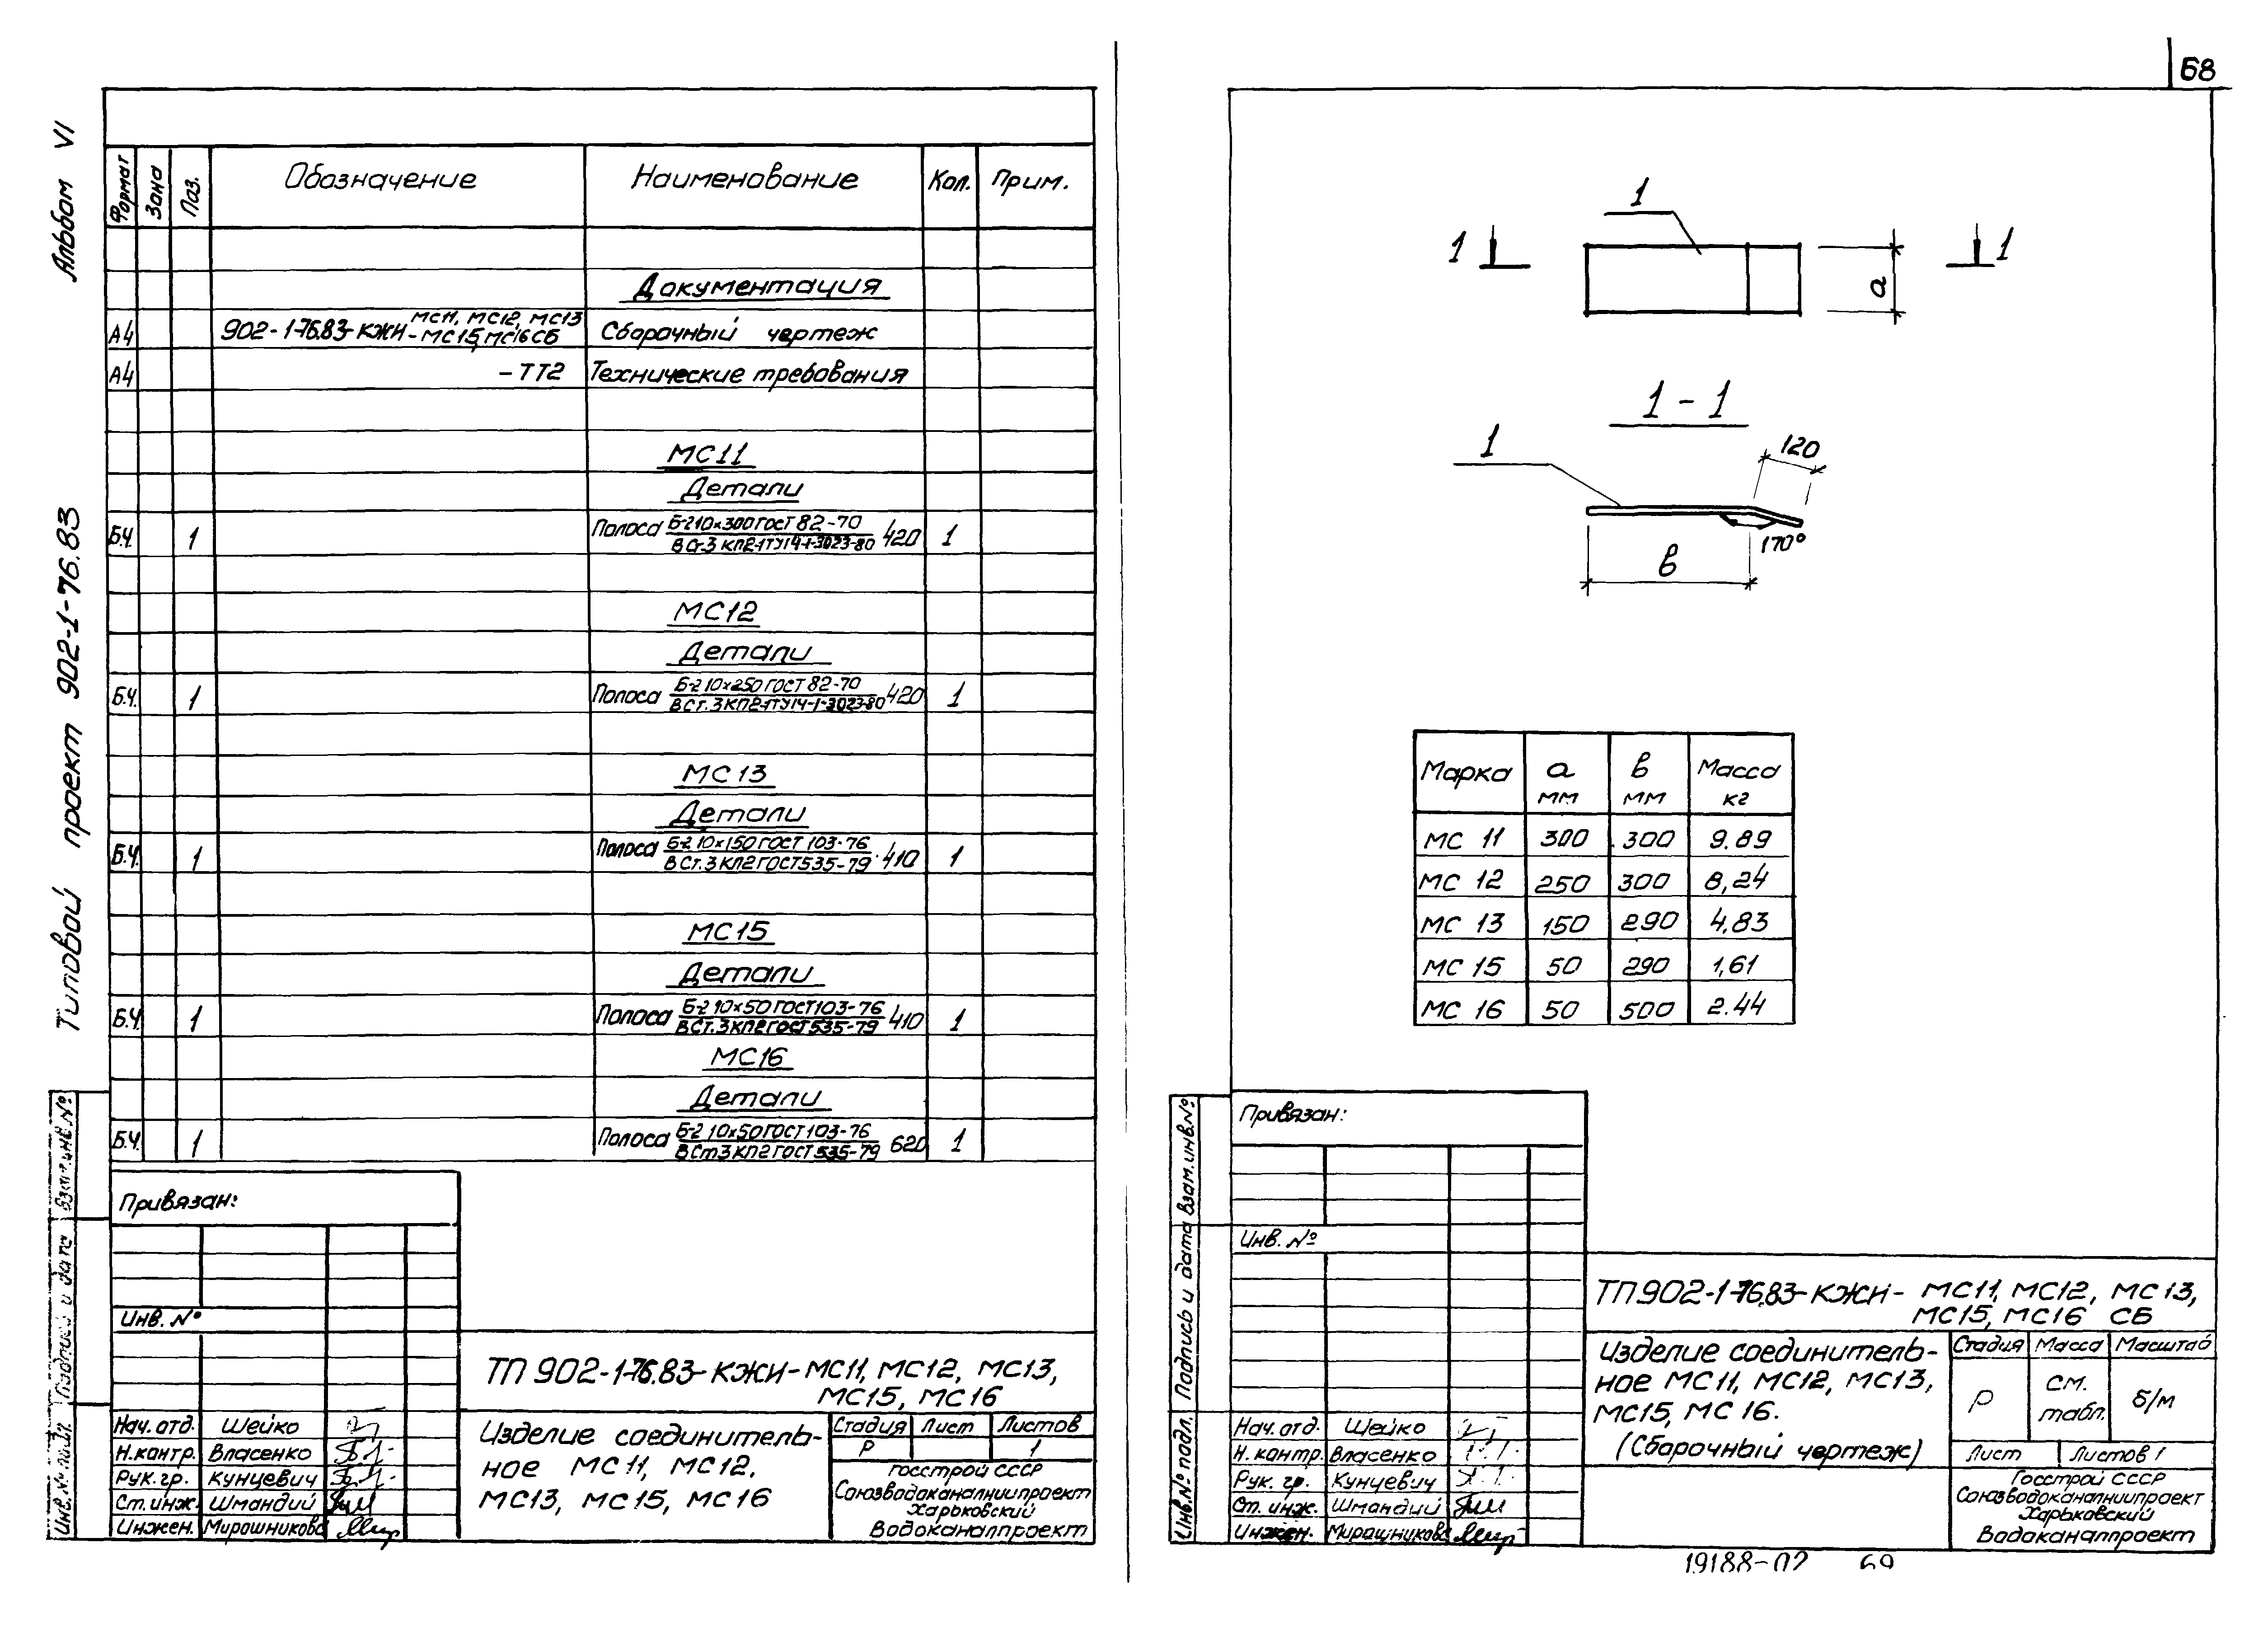 68
Альбом VI
Типовой проект 902-1-76.83
Формат Зона Поз. Обозначение Наименование Кол. Прим.
Документация
А4 902-1-76.83-КЖИ-МС11, МС12, МС13 МС15, МС16СБ Сборочный чертеж
А4 -ТТ2 Технические требования
МС11
Детали
Б.Ч. 1 Полоса Б-2 10×300 ГОСТ 82-70 / ВСт.3 КП2-1 ТУ14-1-3023-80 420 1
МС12
Детали
Б.Ч. 1 Полоса Б-2 10×250 ГОСТ 82-70 / ВСт.3 КП2-1 ТУ14-1-3023-80 420 1
МС13
Детали
Б.Ч. 1 Полоса Б-2 10×150 ГОСТ 103-76 / ВСт.3 КП2 ГОСТ 535-79 410 1
МС15
Детали
Б.Ч. 1 Полоса Б-2 10×50 ГОСТ 103-76 / ВСт.3 КП2 ГОСТ 535-79 410 1
МС16
Детали
Б.Ч. 1 Полоса Б-2 10×50 ГОСТ 103-76 / ВСт3 КП2 ГОСТ 535-79 620 1
Привязан:
Инв. №
Взам. инв. №
Подпись и дата
Инв. № подл.
ТП 902-1-76.83-КЖИ-МС11, МС12, МС13,
МС15, МС16
Нач. отд. Шейко
Н. контр. Власенко
Рук. гр. Кунцевич
Ст. инж. Шмандий
Инжен. Мирошникова
Изделие соединитель-
ное МС11, МС12,
МС13, МС15, МС16
Стадия Лист Листов
Р 1
Госстрой СССР
Союзводоканалниипроект
Харьковский
Водоканалпроект
1
1 1
а
1-1
1
120
170°
в
Марка а мм в мм Масса кг
МС 11 300 300 9.89
МС 12 250 300 8,24
МС 13 150 290 4,83
МС 15 50 290 1,61
МС 16 50 500 2.44
Привязан:
Инв. №
Взам. инв. №
Подпись и дата
Инв. № подл.
ТП 902-1-76.83-КЖИ- МС11, МС12, МС13,
МС15, МС16 СБ
Нач. отд. Шейко
Н. контр. Власенко
Рук. гр. Кунцевич
Ст. инж. Шмандий
Инжен. Мирошникова
Изделие соединитель-
ное МС11, МС12, МС13,
МС15, МС 16.
(Сборочный чертеж)
Стадия Масса Масштаб
Р см. табл. б/м
Лист Листов 1
Госстрой СССР
Союзводоканалниипроект
Харьковский
Водоканалпроект
19188-02 69